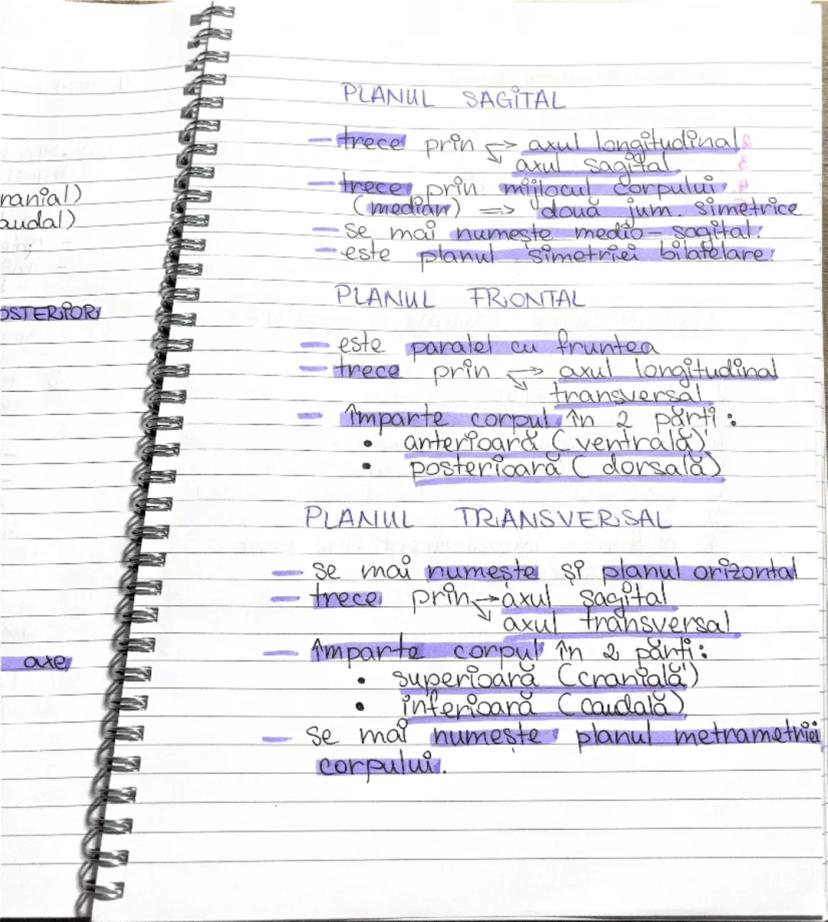 ranial)
audal)
OSTERIOR
axe
PLANUL SAGITAL
— trece prin → axul longitudinal
↘ axul sagital
— trece prin mijlocul corpului
(median) => două jum. simetrice
— se mai numește medio-sagital
— este planul simetriei bilatelare
PLANUL FRONTAL
— este paralel cu fruntea
— trece prin → axul longitudinal
↘ transversal
— împarte corpul în 2 părți:
• anterioară (ventrală)
• posterioară (dorsală)
PLANUL TRANSVERSAL
— se mai numește și planul orizontal
— trece prin → axul sagital
↘ axul transversal
— împarte corpul în 2 părți:
• superioară (cranială)
• inferioară (caudală)
— se mai numește planul metrametriei
corpului.